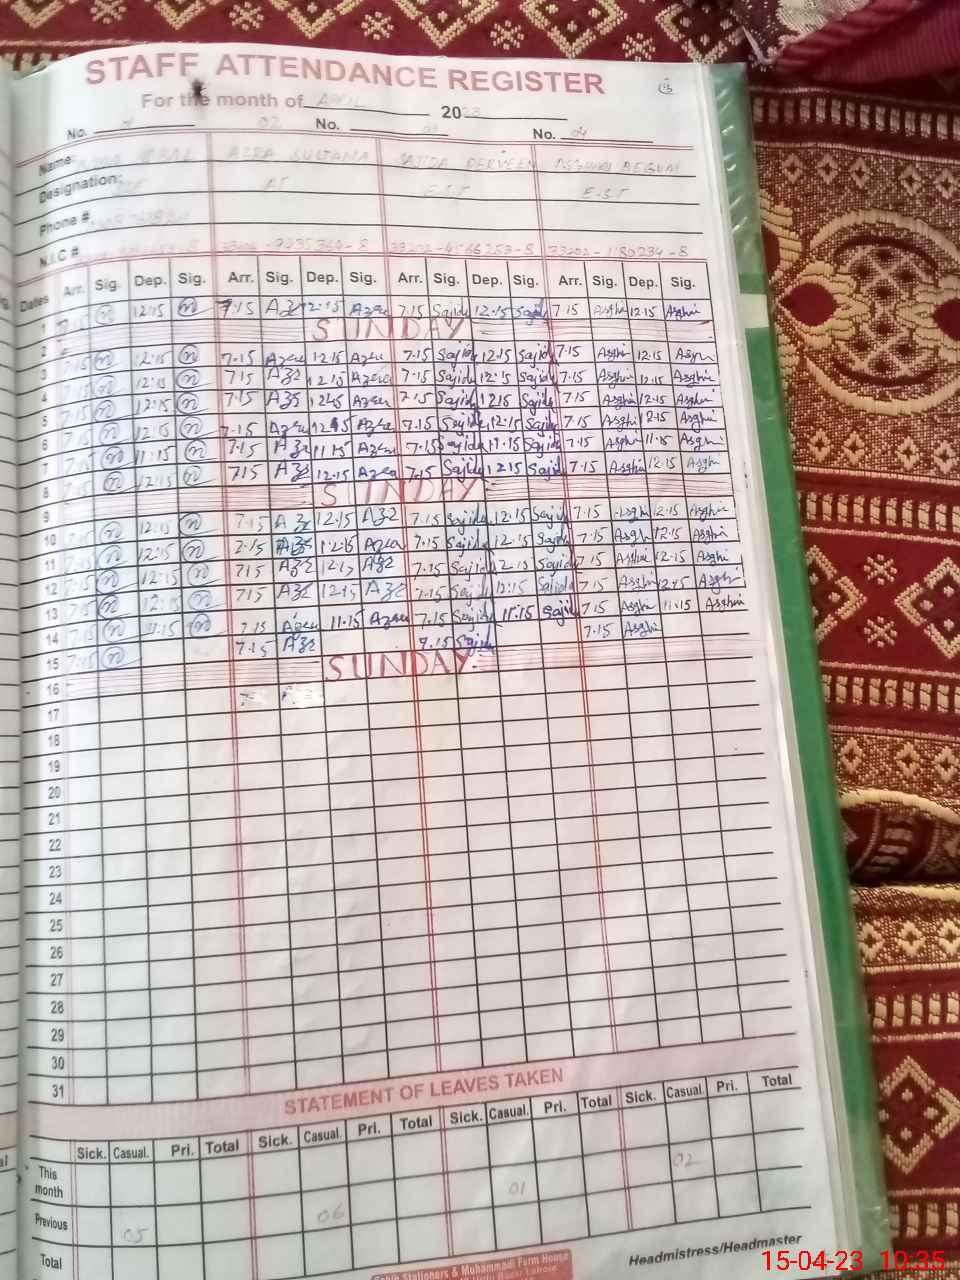 STAFF ATTENDANCE REGISTER
For the month of APRIL 2023
No. 02 No. No. 04
Name: IQBAL AZRA SULTANA SAJIDA PERVEEN ASGHARI BEGUM
Designation: E.S.T E.S.T
Phone #
N.I.C #
Dates Arr. Sig. Dep. Sig. Arr. Sig. Dep. Sig. Arr. Sig. Dep. Sig. Arr. Sig. Dep. Sig.
1 7.15 n 12:15 n 7.15 Aze 12.15 Azra 7.15 Sajida 12.15 Sajida 7.15 Asghri 12.15 Asghri
2 SUNDAY
3 7.15 n 12:15 n 7.15 Azra 12.15 Azra 7.15 Sajida 12.15 Sajida 7.15 Asghri 12.15 Asghri
4 7.15 n 12:15 n 7.15 Aze 12.15 Azra 7.15 Sajida 12.15 Sajida 7.15 Asghri 12.15 Asghri
5 7.15 n 12:15 n 7.15 Aze 12.15 Azra 7.15 Sajida 12.15 Sajida 7.15 Asghri 12.15 Asghri
6 7.15 n 12:15 n 7.15 Azra 12.15 Azra 7.15 Sajida 12.15 Sajida 7.15 Asghri 12.15 Asghri
7 7.15 n 11:15 n 7.15 Aze 11.15 Azra 7.15 Sajida 11.15 Sajida 7.15 Asghri 11.15 Asghri
8 7.15 n 12:15 n 7.15 Aze 12.15 Azra 7.15 Sajida 12.15 Sajida 7.15 Asghri 12.15 Asghri
9 SUNDAY
10 7.15 n 12:15 n 7.15 Aze 12.15 Aze 7.15 Sajida 12.15 Sajida 7.15 Asghri 12.15 Asghri
11 7.15 n 12:15 n 7.15 Aze 12.15 Azra 7.15 Sajida 12.15 Sajida 7.15 Asghri 12.15 Asghri
12 7.15 n 12:15 n 7.15 Aze 12.15 Aze 7.15 Sajida 12.15 Sajida 7.15 Asghri 12.15 Asghri
13 7.15 n 12:15 n 7.15 Aze 12.15 Aze 7.15 Sajida 12.15 Sajida 7.15 Asghri 12.15 Asghri
14 7.15 n 11:15 n 7.15 Azra 11.15 Azra 7.15 Sajida 11.15 Sajida 7.15 Asghri 11.15 Asghri
15 7.15 n 7.15 Aze 7.15 Sajida 7.15 Asghri
16 SUNDAY
17
18
19
20
21
22
23
24
25
26
27
28
29
30
31
STATEMENT OF LEAVES TAKEN
Sick. Casual. Pri. Total Sick. Casual. Pri. Total Sick. Casual. Pri. Total Sick. Casual. Pri. Total
This month
Previous 05 06 01 02
Total
Headmistress/Headmaster
Stationers & Muhammadi Form House
15-04-23 10:35